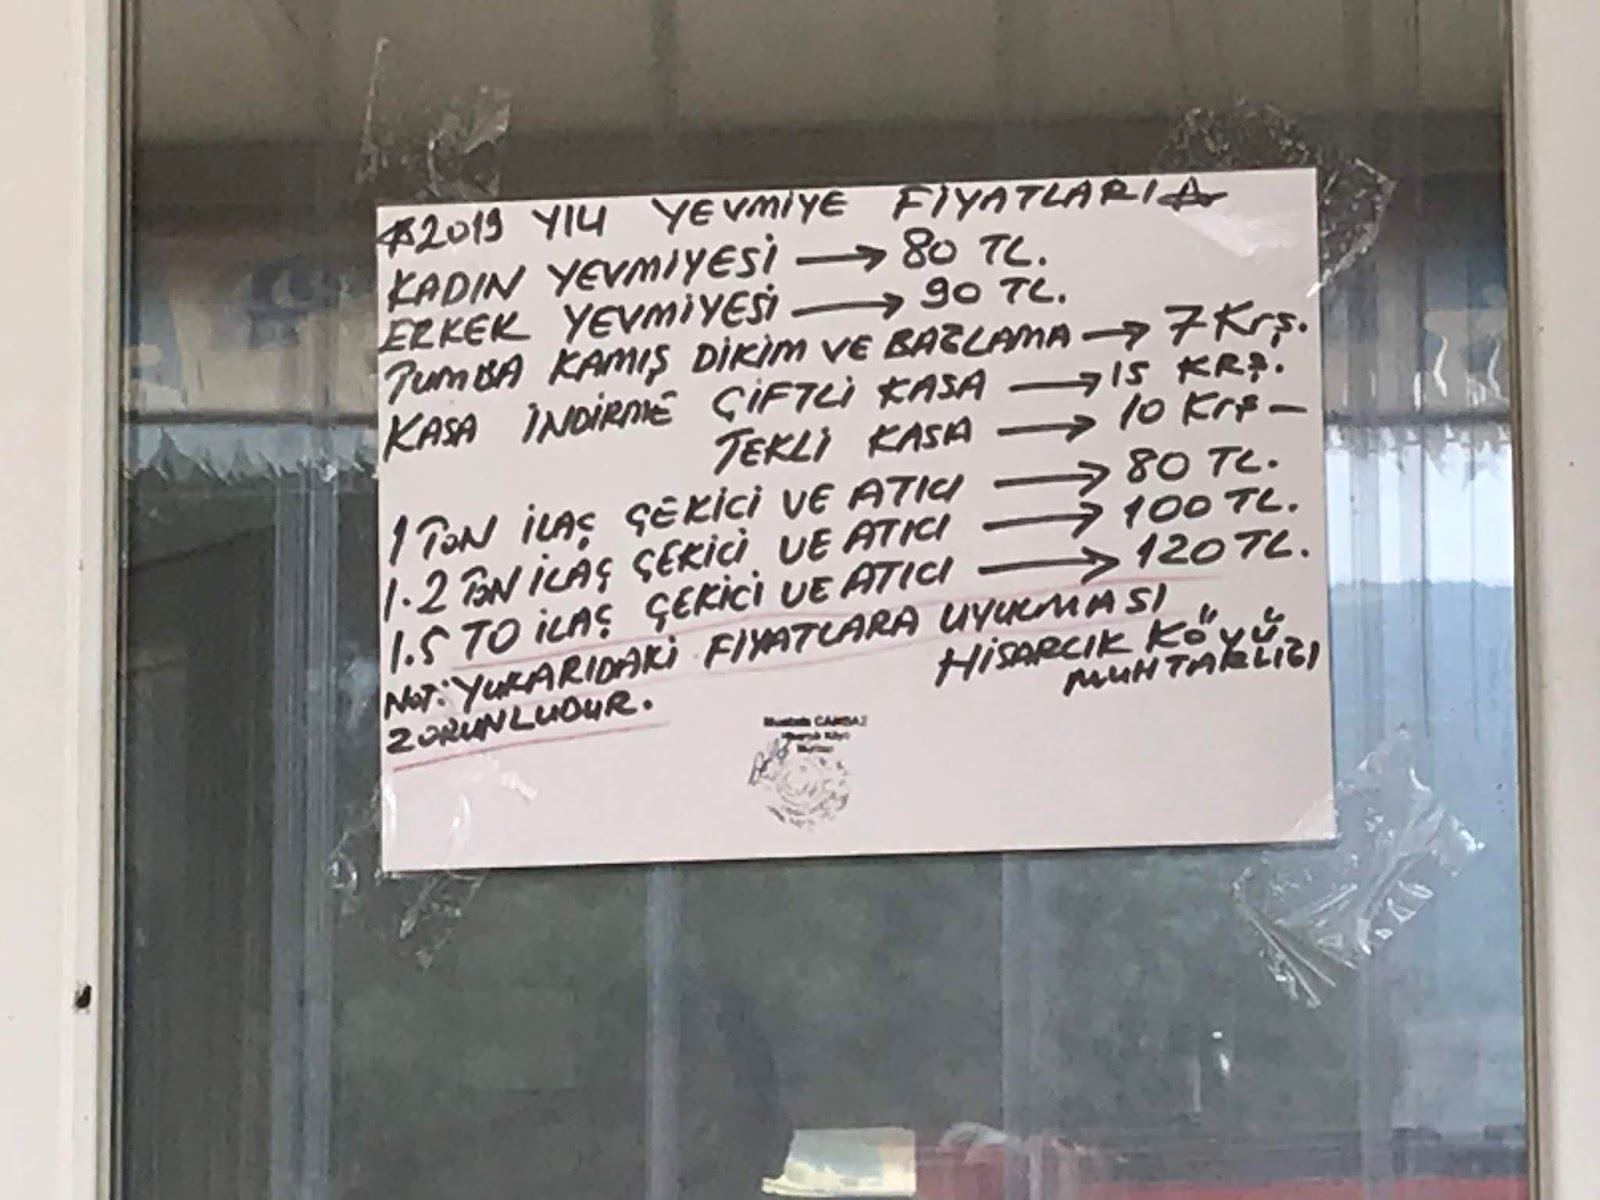 2019 YILI YEVMİYE FİYATLARI
KADIN YEVMİYESİ → 80 TL.
ERKEK YEVMİYESİ → 90 TL.
TUMBA KAMIŞ DİKİM VE BAĞLAMA → 7 Krş.
KASA İNDİRME ÇİFTLİ KASA → 15 KRŞ.
TEKLİ KASA → 10 Krş -
1 TON İLAÇ ÇEKİCİ VE ATICI → 80 TL.
1.2 TON İLAÇ ÇEKİCİ VE ATICI → 100 TL.
1.5 TO İLAÇ ÇEKİCİ VE ATICI → 120 TL.
NOT: YUKARIDAKİ FİYATLARA UYULMASI
ZORUNLUDUR.
HİSARCIK KÖYÜ
MUHTARLIĞI
Mustafa CAMBAZ